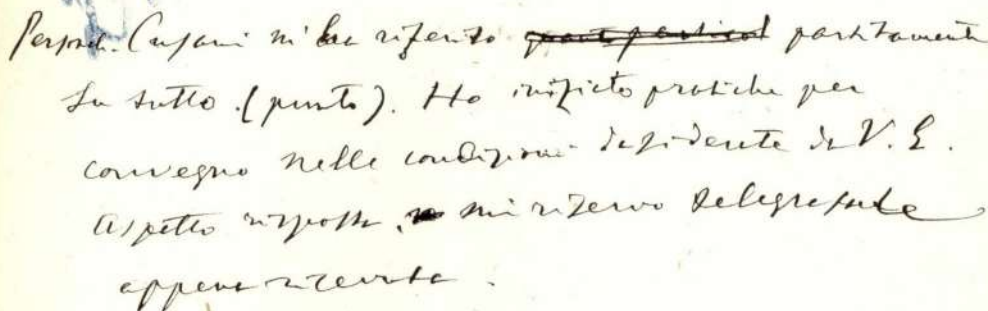 Cusani mi ha riferito partitamente
su tutto. (punto). Ho iniziato pratiche per
convegno nelle condizioni desiderate da V. E.
Aspetto risposta, mi riservo telegrafarle
appena ricevuta.